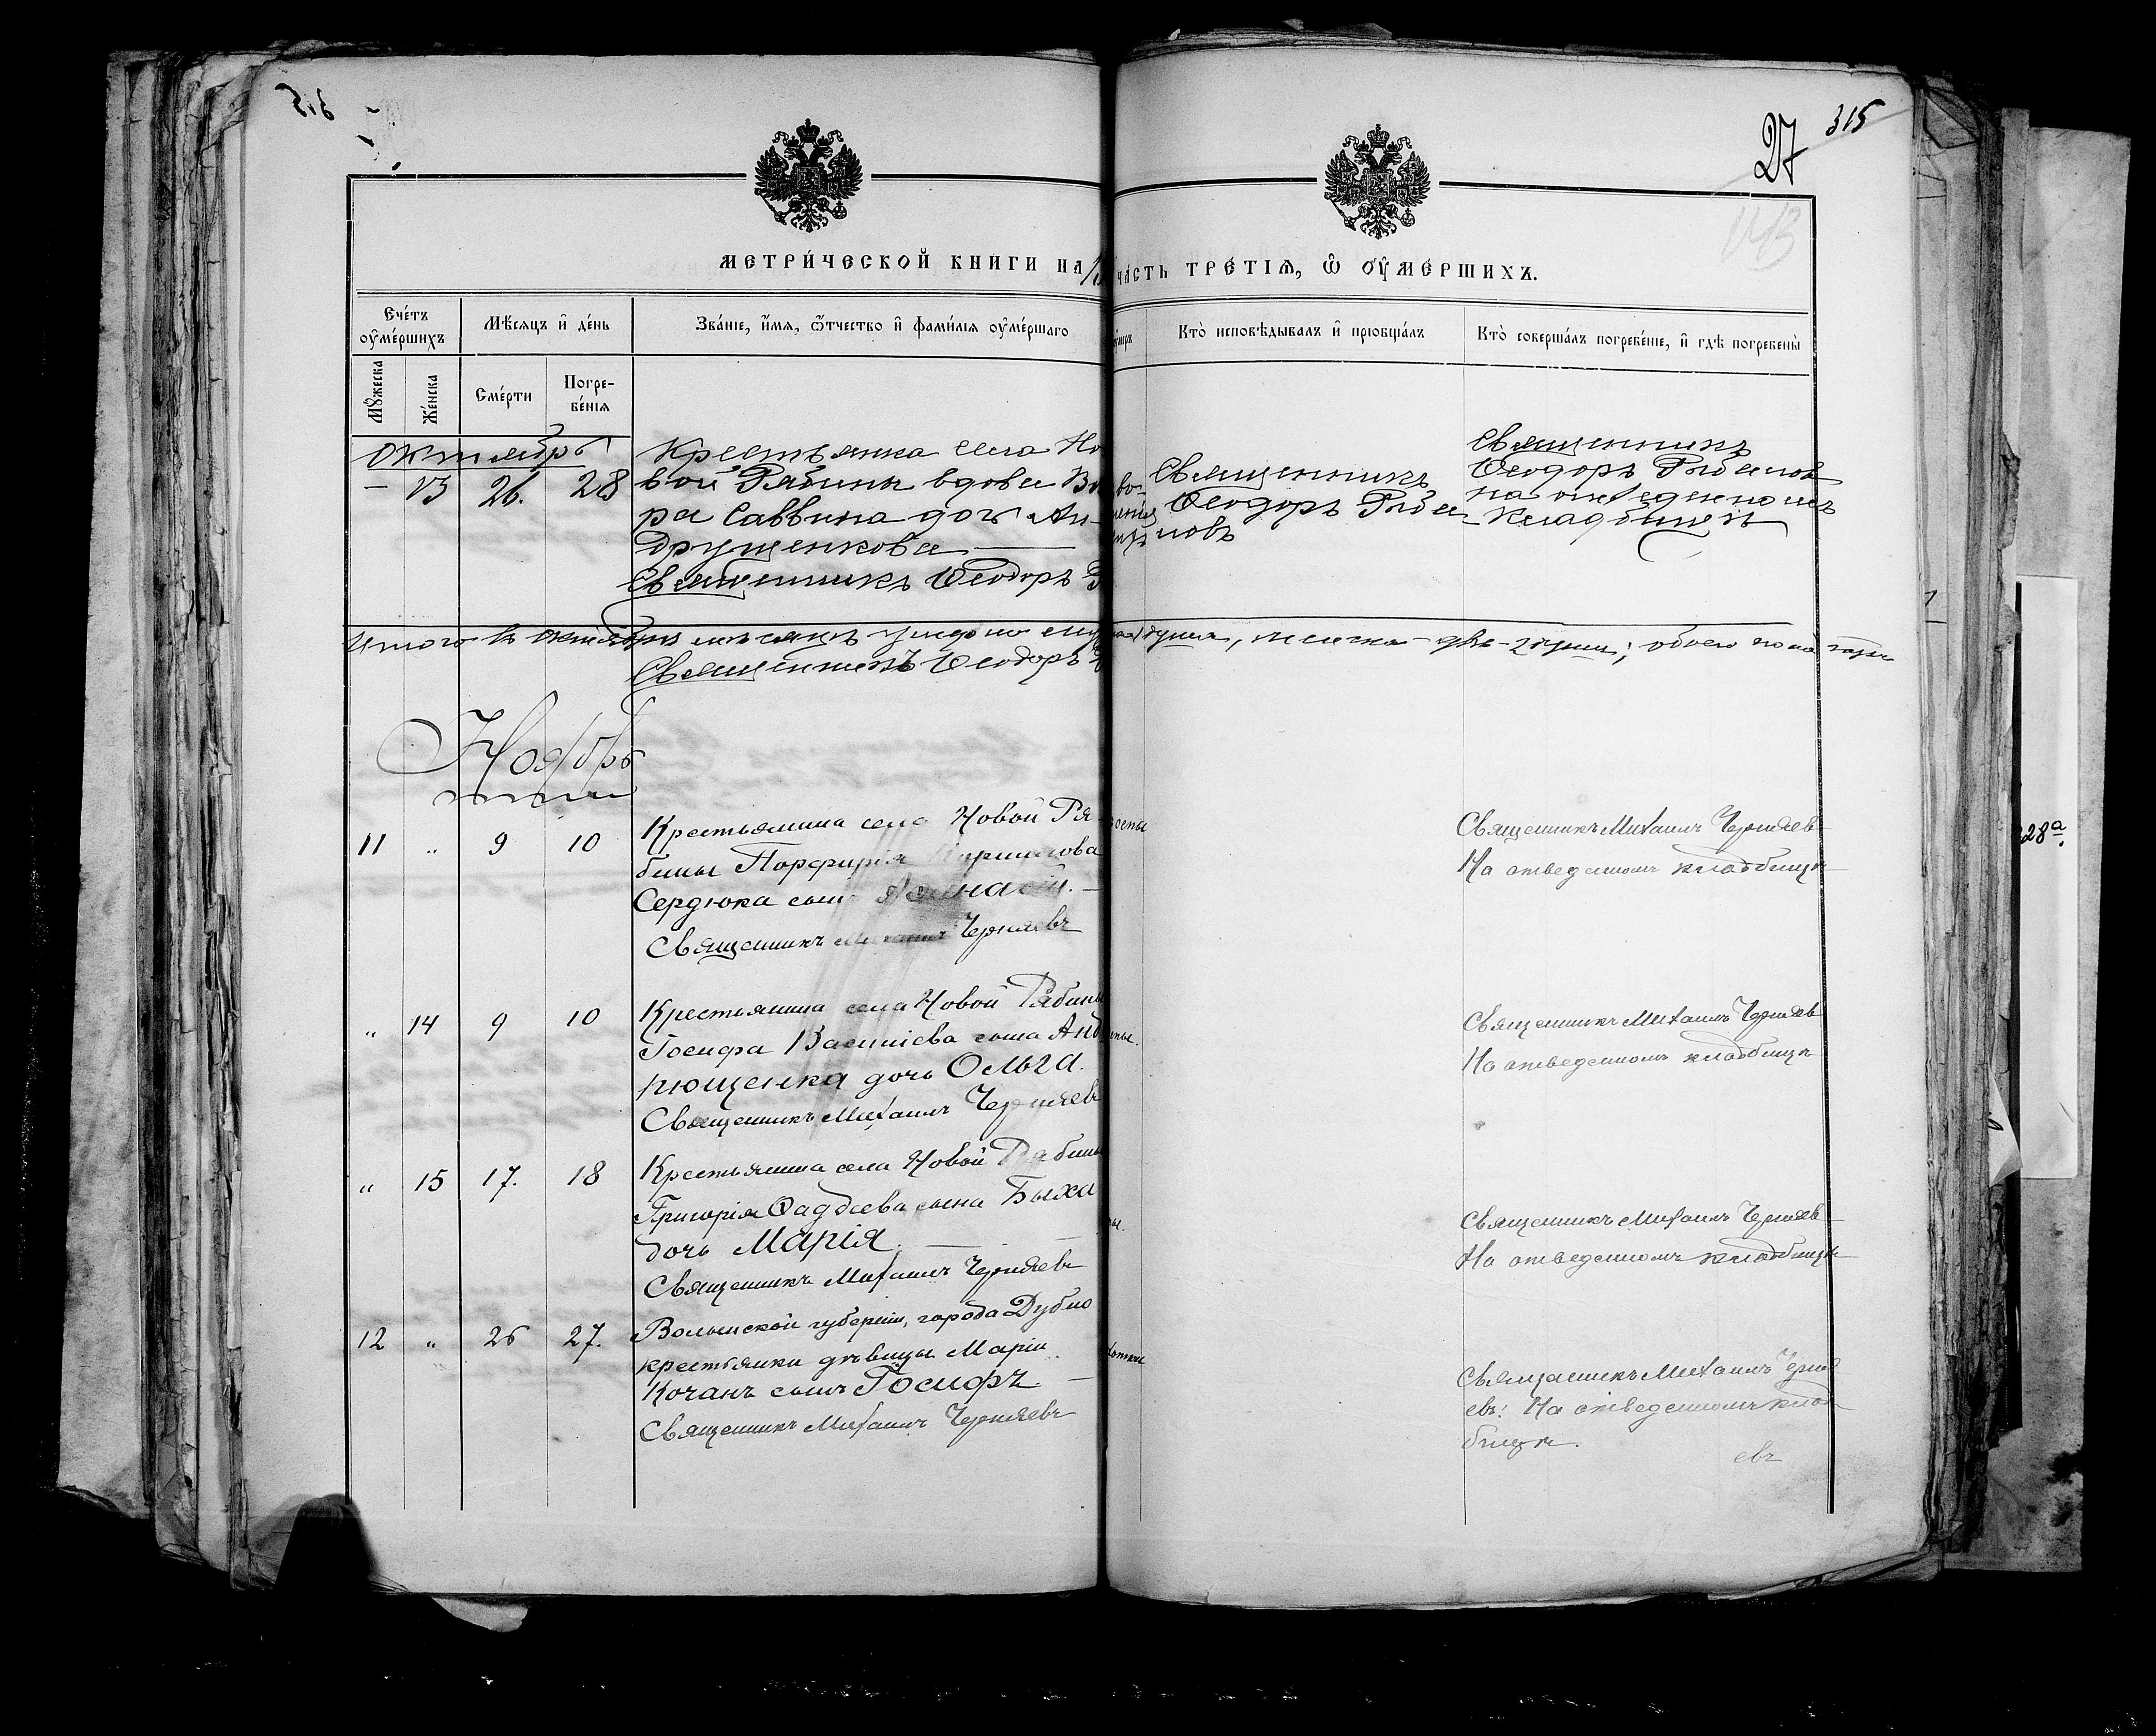 315
27
МЕТРИ́ЧЕСКОЙ КНИГИ НА
ЧА́СТЬ ТРЕ́ТІѦ, Ѽ ОУ҆МЕ́РШИХЪ.
Сче́тъ оу҆ме́ршихъ
Мѣ́сѧцъ и҆ де́нь
Зва́нїе, и҆́мѧ, ѻ҆́тчество и҆ фами́лїѧ оу҆ме́ршаго
Кто̀ исповѣ́дывалъ и҆ прїобща́лъ
Кто̀ соверша́лъ погребе́нїе, и҆ гдѣ̀ погребены̀
Мꙋ́жеска
Же́нска
Сме́рти
Погре-
бе́нїѧ
Октябрь
– 13 26. 28
Крестьянка села Но
вой Рябины вдова Ва
ра Саввина дочь Ан-
друщенкова
Священникъ Ѳеодоръ
Священникъ
Ѳеодоръ
новъ
Священникъ
Ѳеодоръ
на отведенномъ
кладбищѣ
Итого въ октябрѣ мѣсяцѣ
душа, женска – двѣ – 2 души; обоего пола
Священникъ Ѳеодоръ
Ноябрь
11 „ 9 10
Крестьянина села Новой Ря-
бины Порфирія
Сердюка сынъ
Священникъ Михаилъ Черняевъ
Священникъ Михаилъ Черняевъ
На отведенномъ кладбищѣ
„ 14 9 10
Крестьянина села Новой Рябины
Іосифа Василіева сына Анд
рющенка дочь Ольга.
Священникъ Михаилъ Черняевъ
Священникъ Михаилъ Черняевъ
На отведенномъ кладбищѣ
„ 15 17. 18
Крестьянина села Новой Рябины
Григорія Фаддеева сына Быха
дочь Марія.
Священникъ Михаилъ Черняевъ
Священникъ Михаилъ Черняевъ
На отведенномъ кладбищѣ
12 „ 26 27.
Волынской губерніи, города Дубно
крестьянки дѣвицы Маріи
Кочанъ сынъ Іосифъ.
Священникъ Михаилъ Черняевъ
Священникъ Михаилъ Черня
евъ. На отведенномъ клад
бищѣ.
евъ
28а.